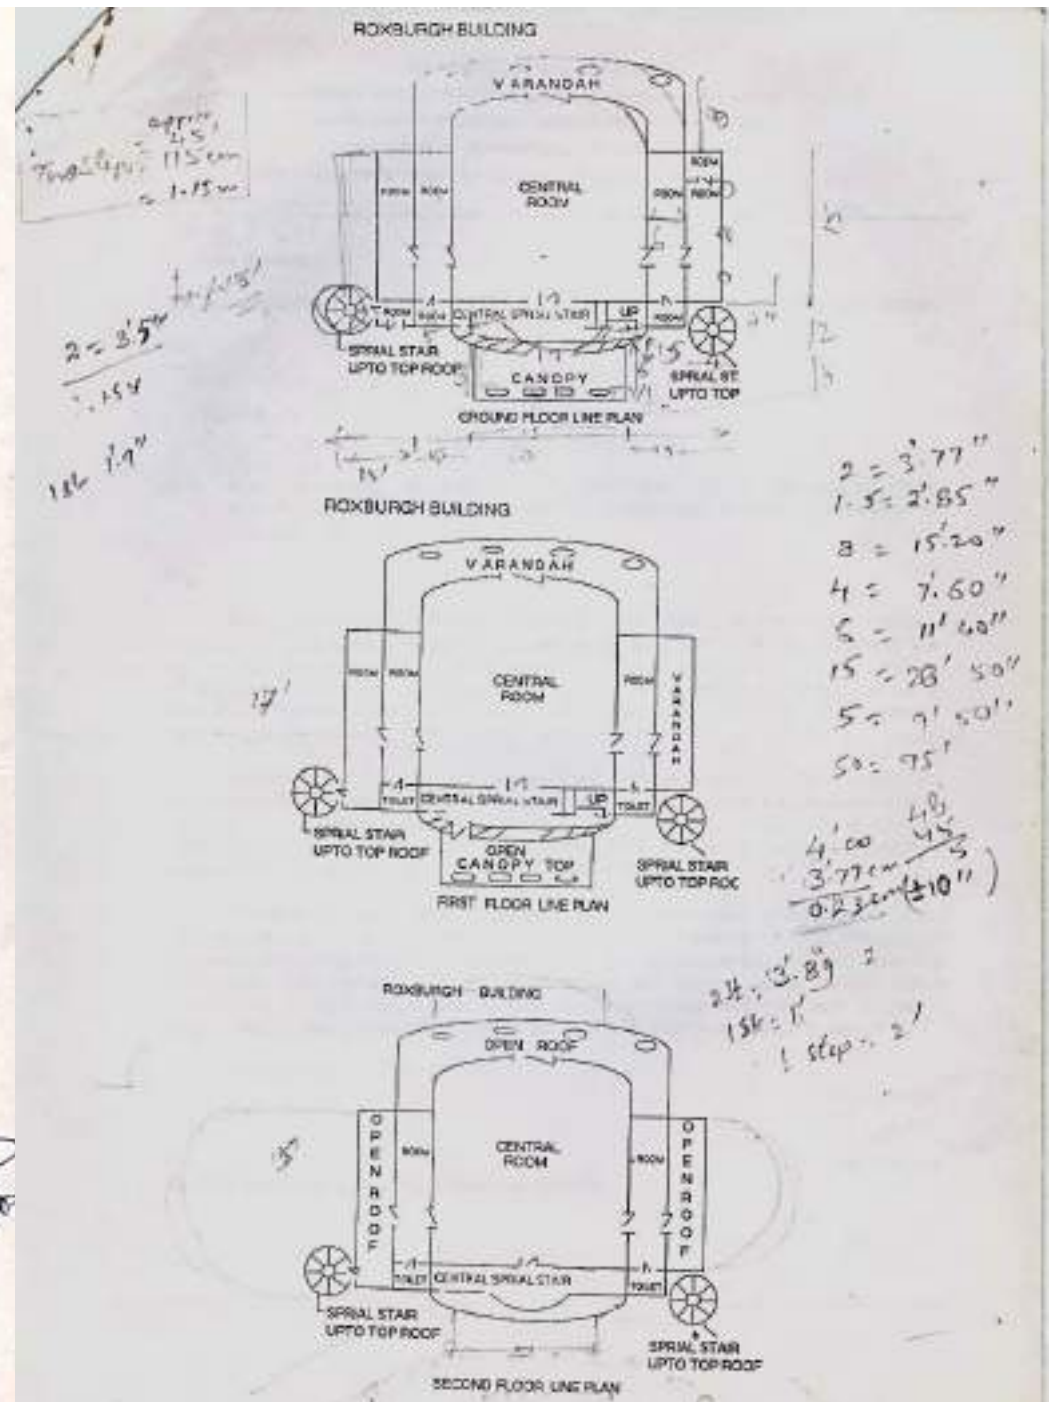 ROXBURGH BUILDING
VARANDAH
approx
45'
Two Steps = 115 cm
= 1.15 m
ROOM
ROOM ROOM
CENTRAL
ROOM
ROOM ROOM
2 = 3'5"
ROOM ROOM CENTRAL SPRIAL STAIR UP ROOM
SPRIAL STAIR
UPTO TOP ROOF
CANOPY
SPRIAL ST
UPTO TOP
GROUND FLOOR LINE PLAN
2 = 3'.77"
1.5 = 2'.85"
8 = 15'.20"
4 = 7'.60"
11' 40"
15 = 28' 50"
5 = 9' 50"
50 = 95'
ROXBURGH BUILDING
VARANDAH
ROOM ROOM
CENTRAL
ROOM
ROOM
VARANDAH
17'
TOILET CENTRAL SPRIAL STAIR UP TOILET
SPRIAL STAIR
UPTO TOP ROOF
OPEN
CANOPY TOP
SPRIAL STAIR
UPTO TOP ROO
FIRST FLOOR LINE PLAN
4'00
3'77 cm
0.23 cm (±10")
2st = 3'.89
1st = 11'
1 step = 2'
ROXBURGH BUILDING
OPEN ROOF
OPEN ROOF
ROOM
CENTRAL
ROOM
ROOM
OPEN ROOF
TOILET CENTRAL SPRIAL STAIR TOILET
SPRIAL STAIR
UPTO TOP ROOF
SPRIAL STAIR
UPTO TOP ROOF
SECOND FLOOR LINE PLAN